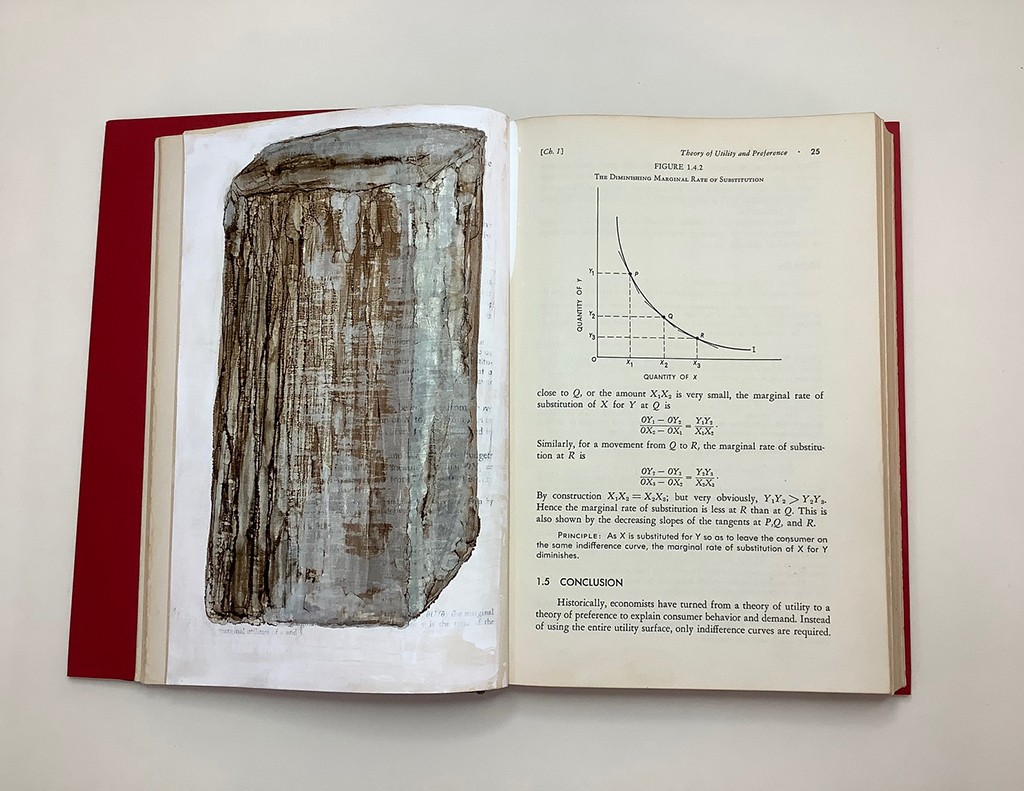 marginal
is the rate of the
marginal utilities of x and
[Ch. 1] Theory of Utility and Preference · 25
FIGURE 1.4.2
THE DIMINISHING MARGINAL RATE OF SUBSTITUTION
QUANTITY OF Y
Y₁
Y₂
Y₃
O
P
Q
R
I
X₁ X₂ X₃
QUANTITY OF X
close to Q, or the amount X₁X₂ is very small, the marginal rate of
substitution of X for Y at Q is
OY₁ − OY₂ / OX₂ − OX₁ = Y₁Y₂ / X₁X₂.
Similarly, for a movement from Q to R, the marginal rate of substitu-
tion at R is
OY₂ − OY₃ / OX₃ − OX₂ = Y₂Y₃ / X₂X₃.
By construction X₁X₂ = X₂X₃; but very obviously, Y₁Y₂ > Y₂Y₃.
Hence the marginal rate of substitution is less at R than at Q. This is
also shown by the decreasing slopes of the tangents at P,Q, and R.
PRINCIPLE: As X is substituted for Y so as to leave the consumer on
the same indifference curve, the marginal rate of substitution of X for Y
diminishes.
1.5 CONCLUSION
Historically, economists have turned from a theory of utility to a
theory of preference to explain consumer behavior and demand. Instead
of using the entire utility surface, only indifference curves are required.